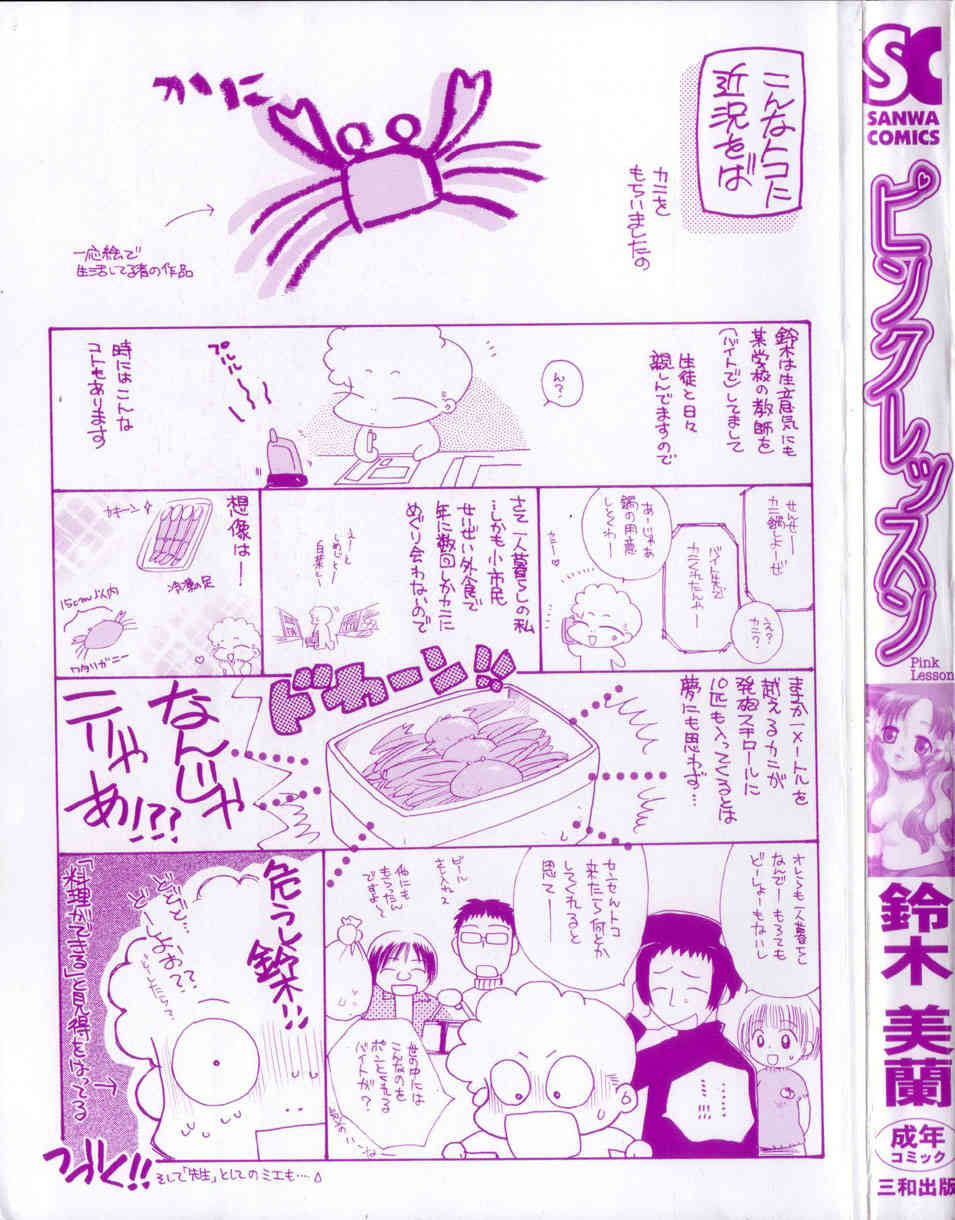 こんなトコに
近況をば
カニを
もちいましたの
かに
一応絵で
生活してる者の作品
鈴木は生意気にも
某学校の教師を
(バイトで)してまして
生徒と日々
親しんでますので
ん?
プルルル
時にはこんな
コトもあります
せんせー
カニ鍋しよーぜ
えっ?
カニ?
バイト先で
カニくれたんやー
あーじゃあ
鍋の用意
しとくわー
カニー♡
さて一人暮らしの私
しかも小市民
せいぜい外食で
年に数回しかカニに
めぐり会わないので
えーと
しめじとー
白菜とー
想像はー!
カキーン
冷凍の足
15cm以内
ワタリガニー
まさか一メートルを
越えるカニが
発泡スチロールに
10匹も入ってくるとは
夢にも思わず…
ドカーン!!
なんじゃ
こりゃ
あ!!??
オレらも一人暮しで
なんでー もらっても
どーしょーもないし
センセんトコ
来たら何とか
してくれると
思てー
ビール
他にも
もらったん
ですよー
世の中には
こんなのを
ポンとくれる
バイトが?
……!!!
危うし
鈴木!!
どどど…
どーしよお??
「料理ができる」と見得をはってる
つづく!!
そして「先生」としてのミエも…
SC
SANWA
COMICS
ピンクレッスン
Pink
Lesson
鈴木美蘭
成年
コミック
三和出版